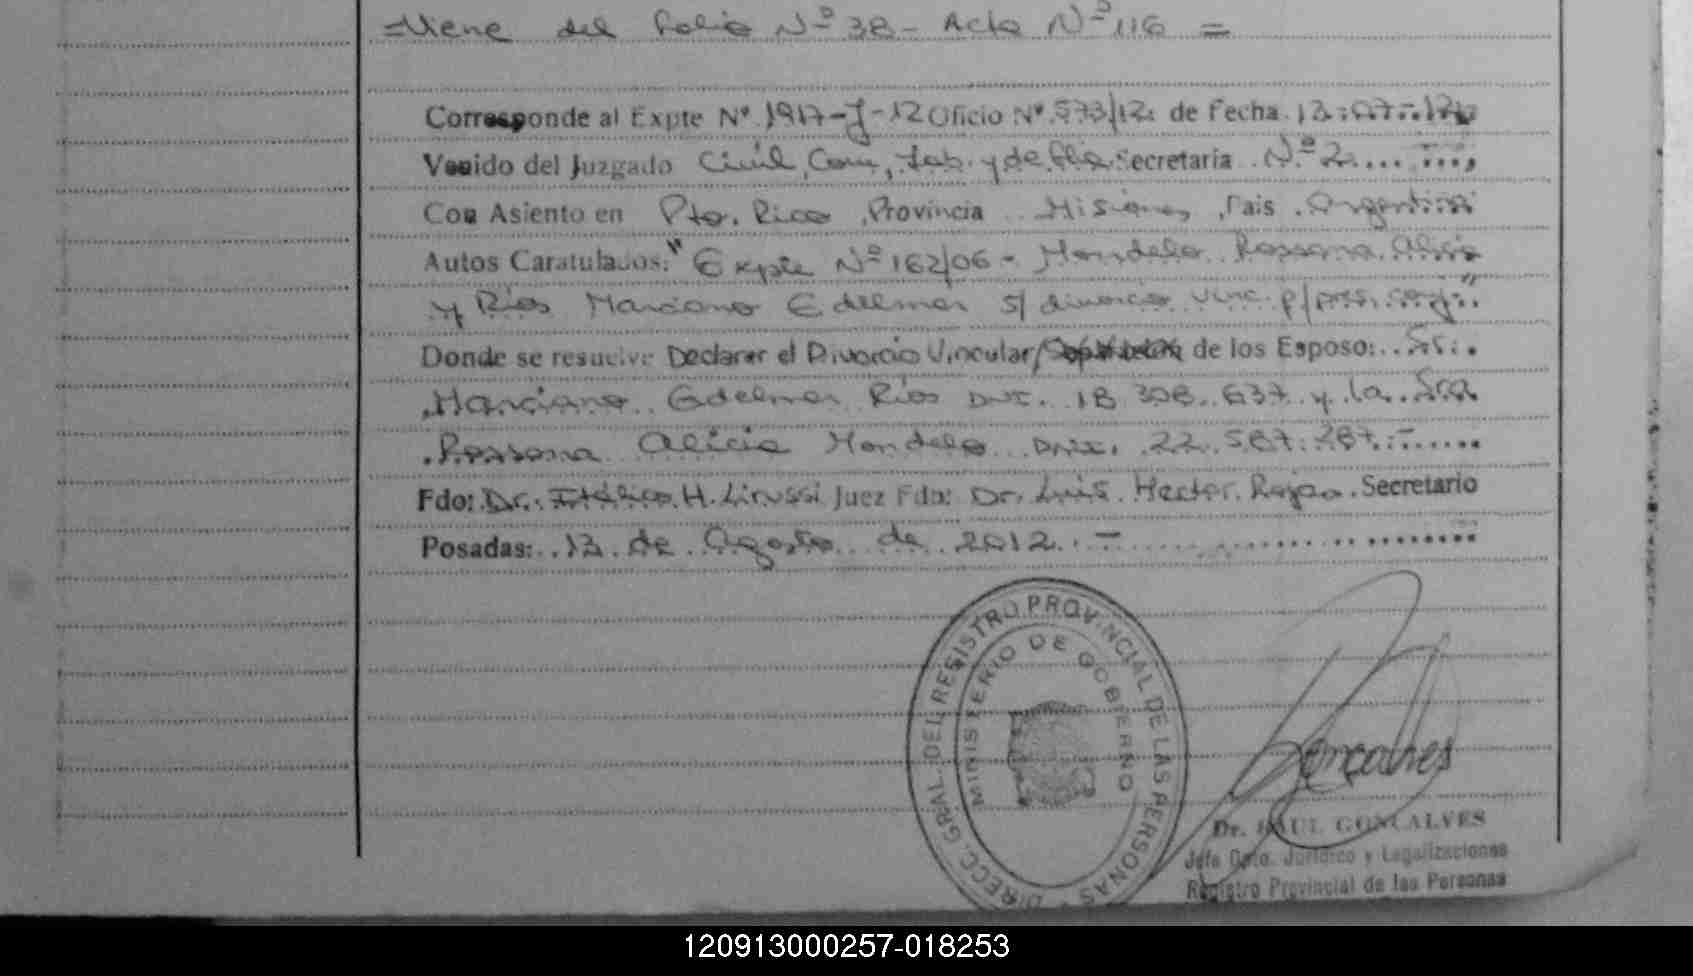 =Viene del folio Nº 38 - Acta Nº 116 =
Corresponde al Expte Nº 1917-J-12 Oficio Nº 573/12: de fecha 13-07-12
Venido del Juzgado Civil, Com, Lab. y de flia Secretaría Nº 2
Con Asiento en Pto. Rico, Provincia Misiones, País Argentina
Autos Caratulados: "Expte Nº 162/06 - Mondelo Rossana Alicia
y Ríos Marciano Edelmar s/ divorcio vinc. p/ pres. conj."
Donde se resuelve Declarar el Divorcio Vincular/ de los Esposo: Sr.
Marciano Edelmar Ríos DNI. 18 308 637 y la Sra
Rossana Alicia Mondelo DNI. 22.587.287.-
Fdo: Dr. Itálico H. Lirussi Juez Fdo: Dr. Luis Hector Rojas Secretario
Posadas: 13 de Agosto de 2012.-
DIRECC. GRAL. DEL REGISTRO PROVINCIAL DE LAS PERSONAS
MINISTERIO DE GOBIERNO
Goncalves
Dr. RAUL GONCALVES
Jefe Dpto. Jurídico y Legalizaciones
Registro Provincial de las Personas
120913000257-018253